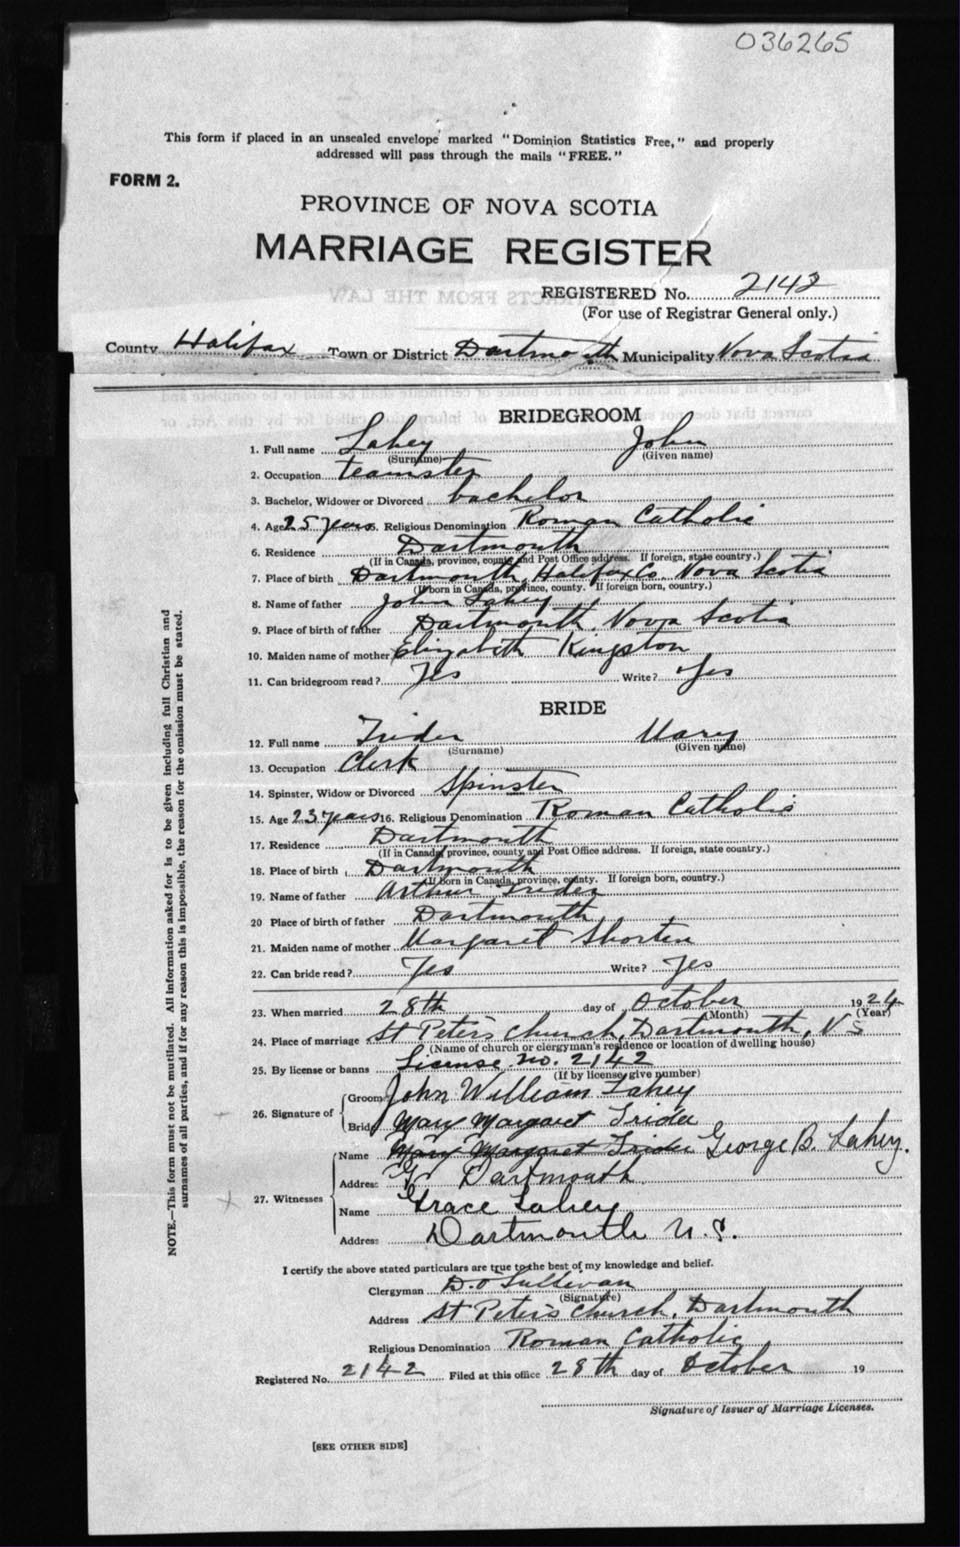 036265
This form if placed in an unsealed envelope marked "Dominion Statistics Free," and properly
addressed will pass through the mails "FREE."
FORM 2.
PROVINCE OF NOVA SCOTIA
MARRIAGE REGISTER
REGISTERED No. 2142
(For use of Registrar General only.)
County Halifax Town or District Dartmouth Municipality Nova Scotia
BRIDEGROOM
1. Full name Lahey John
(Surname) (Given name)
2. Occupation teamster
3. Bachelor, Widower or Divorced bachelor
4. Age 25 years 5. Religious Denomination Roman Catholic
6. Residence Dartmouth
(If in Canada, province, county and Post Office address. If foreign, state country.)
7. Place of birth Dartmouth, Halifax Co. Nova Scotia
(If born in Canada, province, county. If foreign born, country.)
8. Name of father John Lahey
9. Place of birth of father Dartmouth, Nova Scotia
10. Maiden name of mother Elizabeth Kingston
11. Can bridegroom read? Yes Write? Yes
BRIDE
12. Full name Trider Mary
(Surname) (Given name)
13. Occupation Clerk
14. Spinster, Widow or Divorced Spinster
15. Age 23 years 16. Religious Denomination Roman Catholic
17. Residence Dartmouth
(If in Canada, province, county and Post Office address. If foreign, state country.)
18. Place of birth Dartmouth
(If born in Canada, province, county. If foreign born, country.)
19. Name of father Arthur Trider
20 Place of birth of father Dartmouth
21. Maiden name of mother Margaret Shorten
22. Can bride read? Yes Write? Yes
23. When married 28th day of October 1924
(Month) (Year)
24. Place of marriage St Peter's Church, Dartmouth, N S
(Name of church or clergyman's residence or location of dwelling house)
25. By license or banns License no. 2142
(If by license, give number)
26. Signature of Groom John William Lahey
Bride Mary Margaret Trider
27. Witnesses Name Mary Margaret Trider George B. Lahey.
Address Dartmouth
Name Grace Lahey
Address Dartmouth N.S.
I certify the above stated particulars are true to the best of my knowledge and belief.
Clergyman D. O'Sullivan
(Signature)
Address St Peter's Church, Dartmouth
Religious Denomination Roman Catholic
Registered No. 2142 Filed at this office 28th day of October 19
Signature of Issuer of Marriage Licenses.
[SEE OTHER SIDE]
NOTE.—This form must not be mutilated. All information asked for is to be given including full Christian and
surnames of all parties, and if for any reason this is impossible, the reason for the omission must be stated.